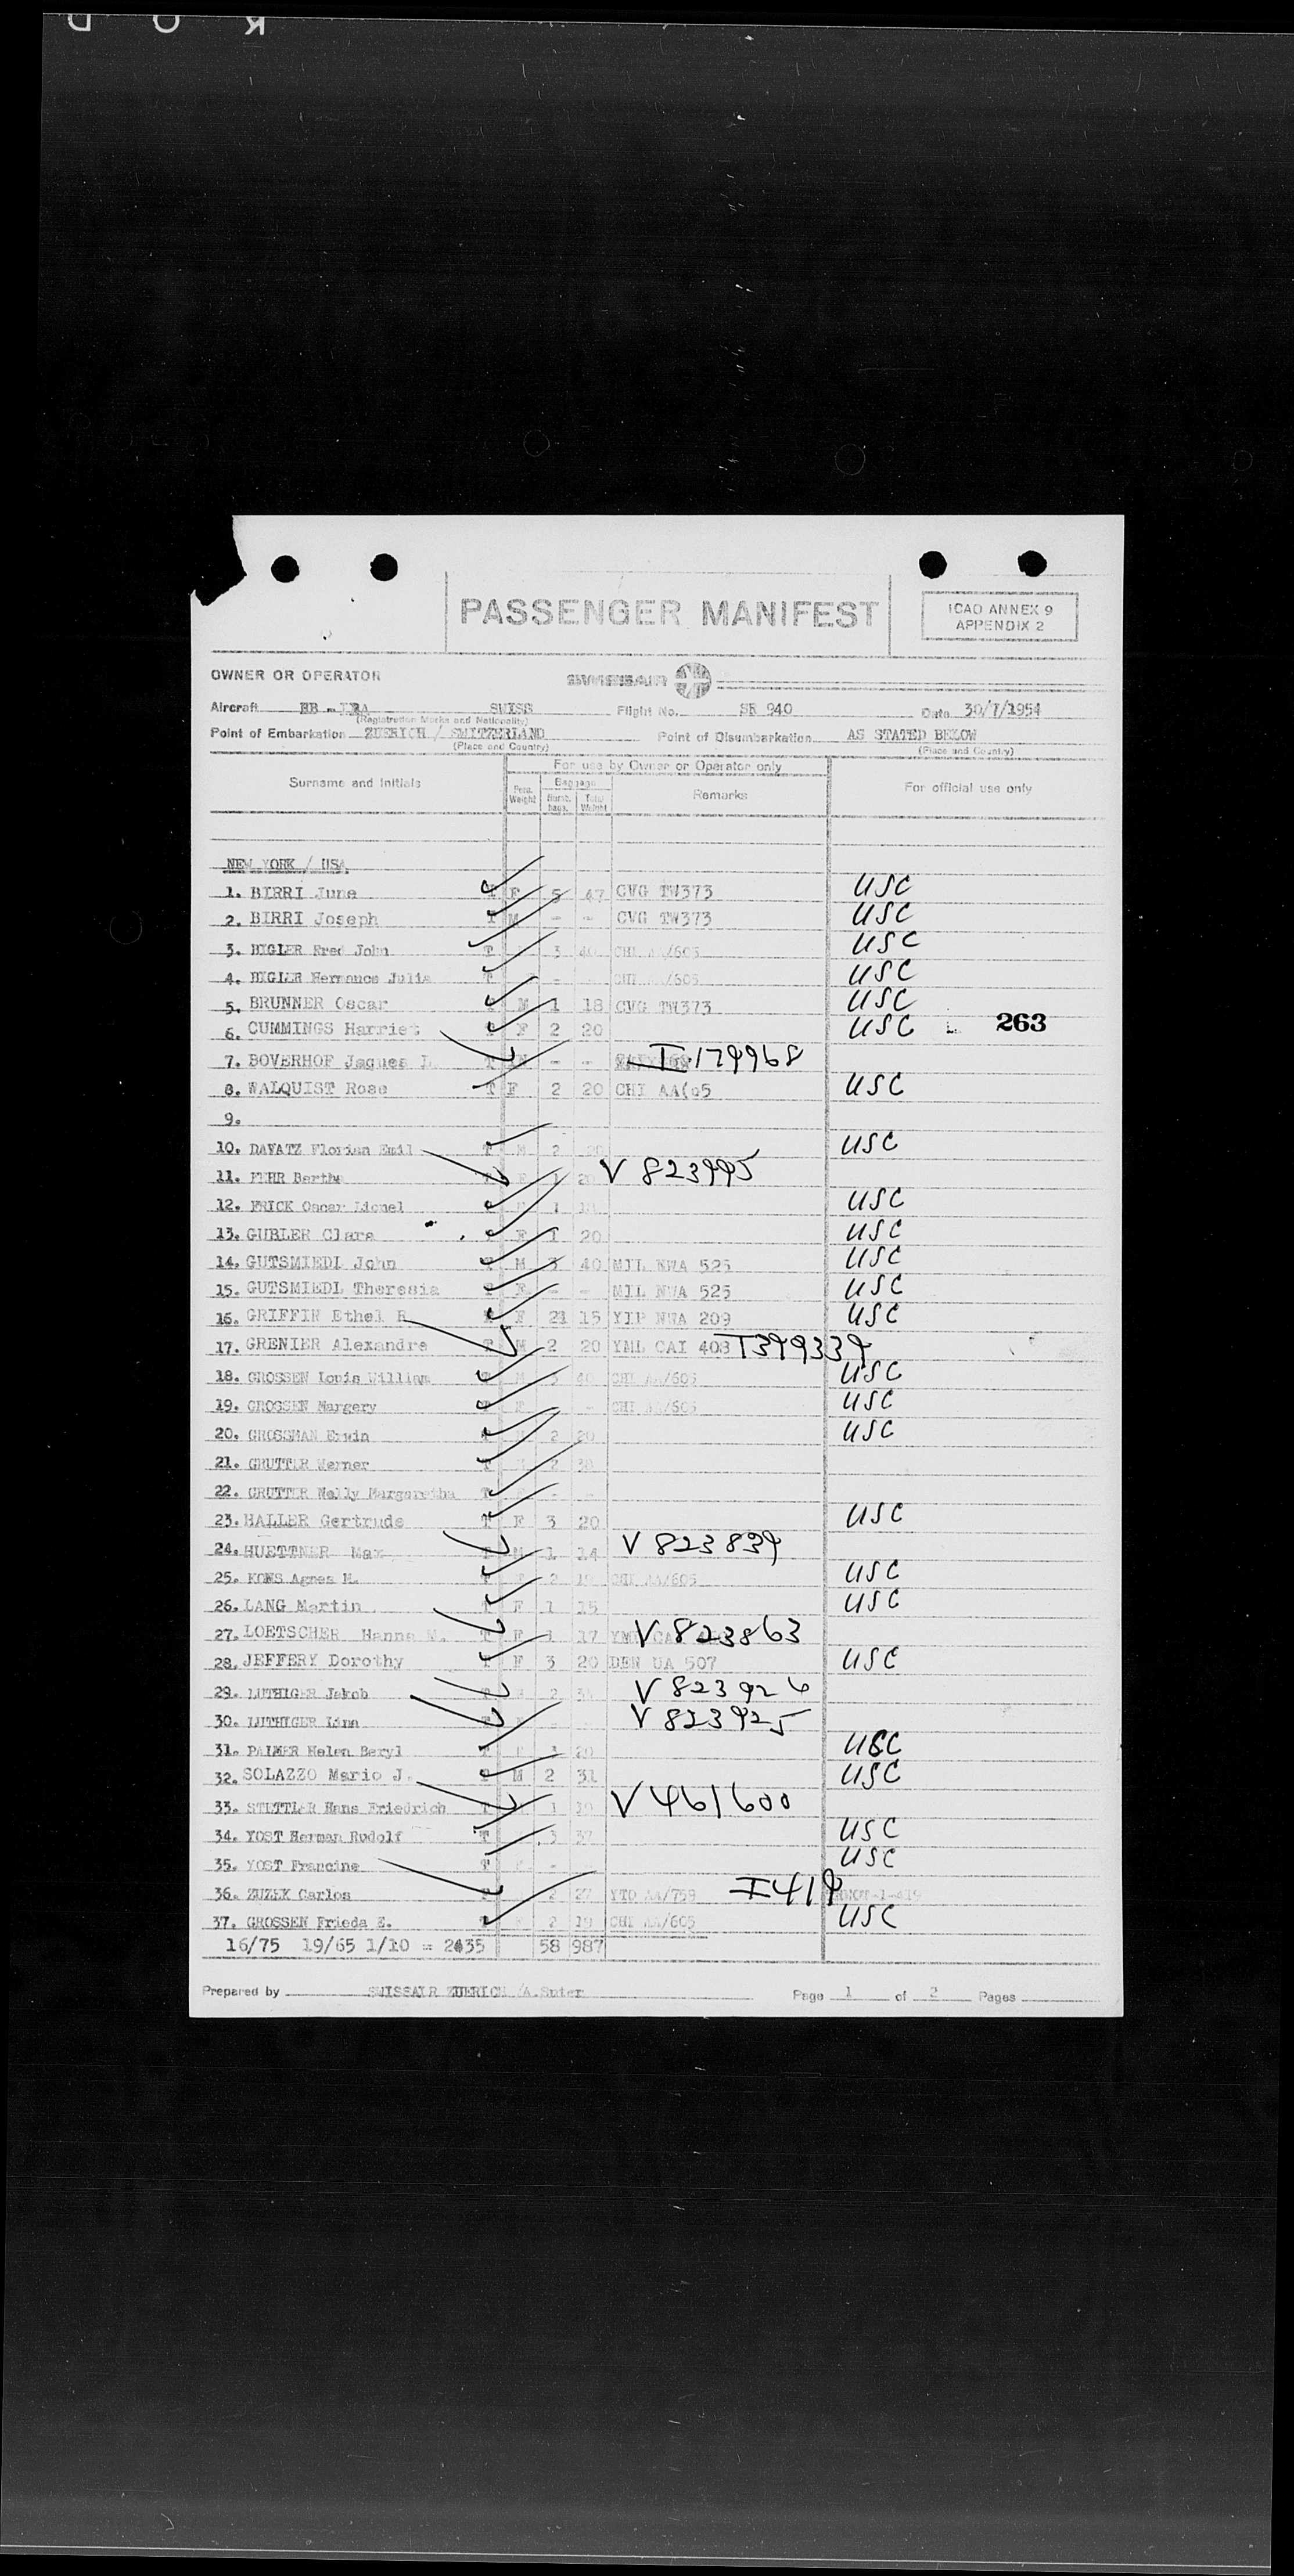 PASSENGER MANIFEST
ICAO ANNEX 9
APPENDIX 2
OWNER OR OPERATOR SWISSAIR
Aircraft SWISS Flight No. SR 940 Date 30/7/1954
(Registration Marks and Nationality)
Point of Embarkation ZUERICH / SWITZERLAND Point of Disembarkation AS STATED BELOW
(Place and Country) (Place and Country)
For use by Owner or Operator only
Surname and Initials Pass. Weight Baggage Numb. bags. Total Weight Remarks For official use only
NEW YORK / USA
1. BIRRI June T F 5 47 CVG TW373 USC
2. BIRRI Joseph T M - - CVG TW373 USC
3. BIGLER Fred John T 3 40 CHI AA/605 USC
4. BIGLER Julia T - CHI AA/605 USC
5. BRUNNER Oscar T M 1 18 CVG TW373 USC
6. CUMMINGS Harriet T F 2 20 USC 263
7. BOVERHOF Jaques L. T M - - I 179968
8. WALQUIST Rose T F 2 20 CHI AA605 USC
9.
10. DAVATZ Florian Emil T M 2 20 USC
11. FEHR Bertha T F 1 20 V 823995
12. FRICK Oscar Lionel 1 USC
13. GUBLER Clara F 1 20 USC
14. GUTSMIEDL John T M 3 40 MIL NWA 525 USC
15. GUTSMIEDL Theresia T F - - MIL NWA 525 USC
16. GRIFFIN Ethel B F 21 15 YIP NWA 209 USC
17. GRENIER Alexandre T M 2 20 YML CAI 403 T399339
18. GROSSEN Louis William T M 3 40 CHI AA/605 USC
19. GROSSEN Margery T F - - CHI AA/605 USC
20. GROSSMAN Erwin T M 2 20 USC
21. GRUTTER Werner T M 2 38
22. GRUTTER Nelly Margaretha T - -
23. HALLER Gertrude T F 3 20 USC
24. HUETTNER Max T M 1 14 V 823839
25. KONS Agnes M. T F 2 19 CHI AA/605 USC
26. LANG Martin T F 1 15 USC
27. LOETSCHER Hanna T F 1 17 V 823863
28. JEFFERY Dorothy T F 3 20 DEN UA 507 USC
29. LUTHIGER Jakob T 2 V 823926
30. LUTHIGER Lina T V 823925
31. PALMER Helen Beryl T F 3 20 USC
32. SOLAZZO Mario J. T M 2 31 USC
33. STETTLER Hans Friedrich T 1 19 V 461600
34. YOST Herman Rudolf T 3 37 USC
35. YOST Francine T F - USC
36. ZUZEK Carlos T 2 27 YTO AA/759 I 419
37. GROSSEN Frieda E. T F 2 19 CHI AA/605 USC
16/75 19/65 1/10 = 2435 58 987
Prepared by SWISSAIR ZUERICH /A.Suter Page 1 of 2 Pages